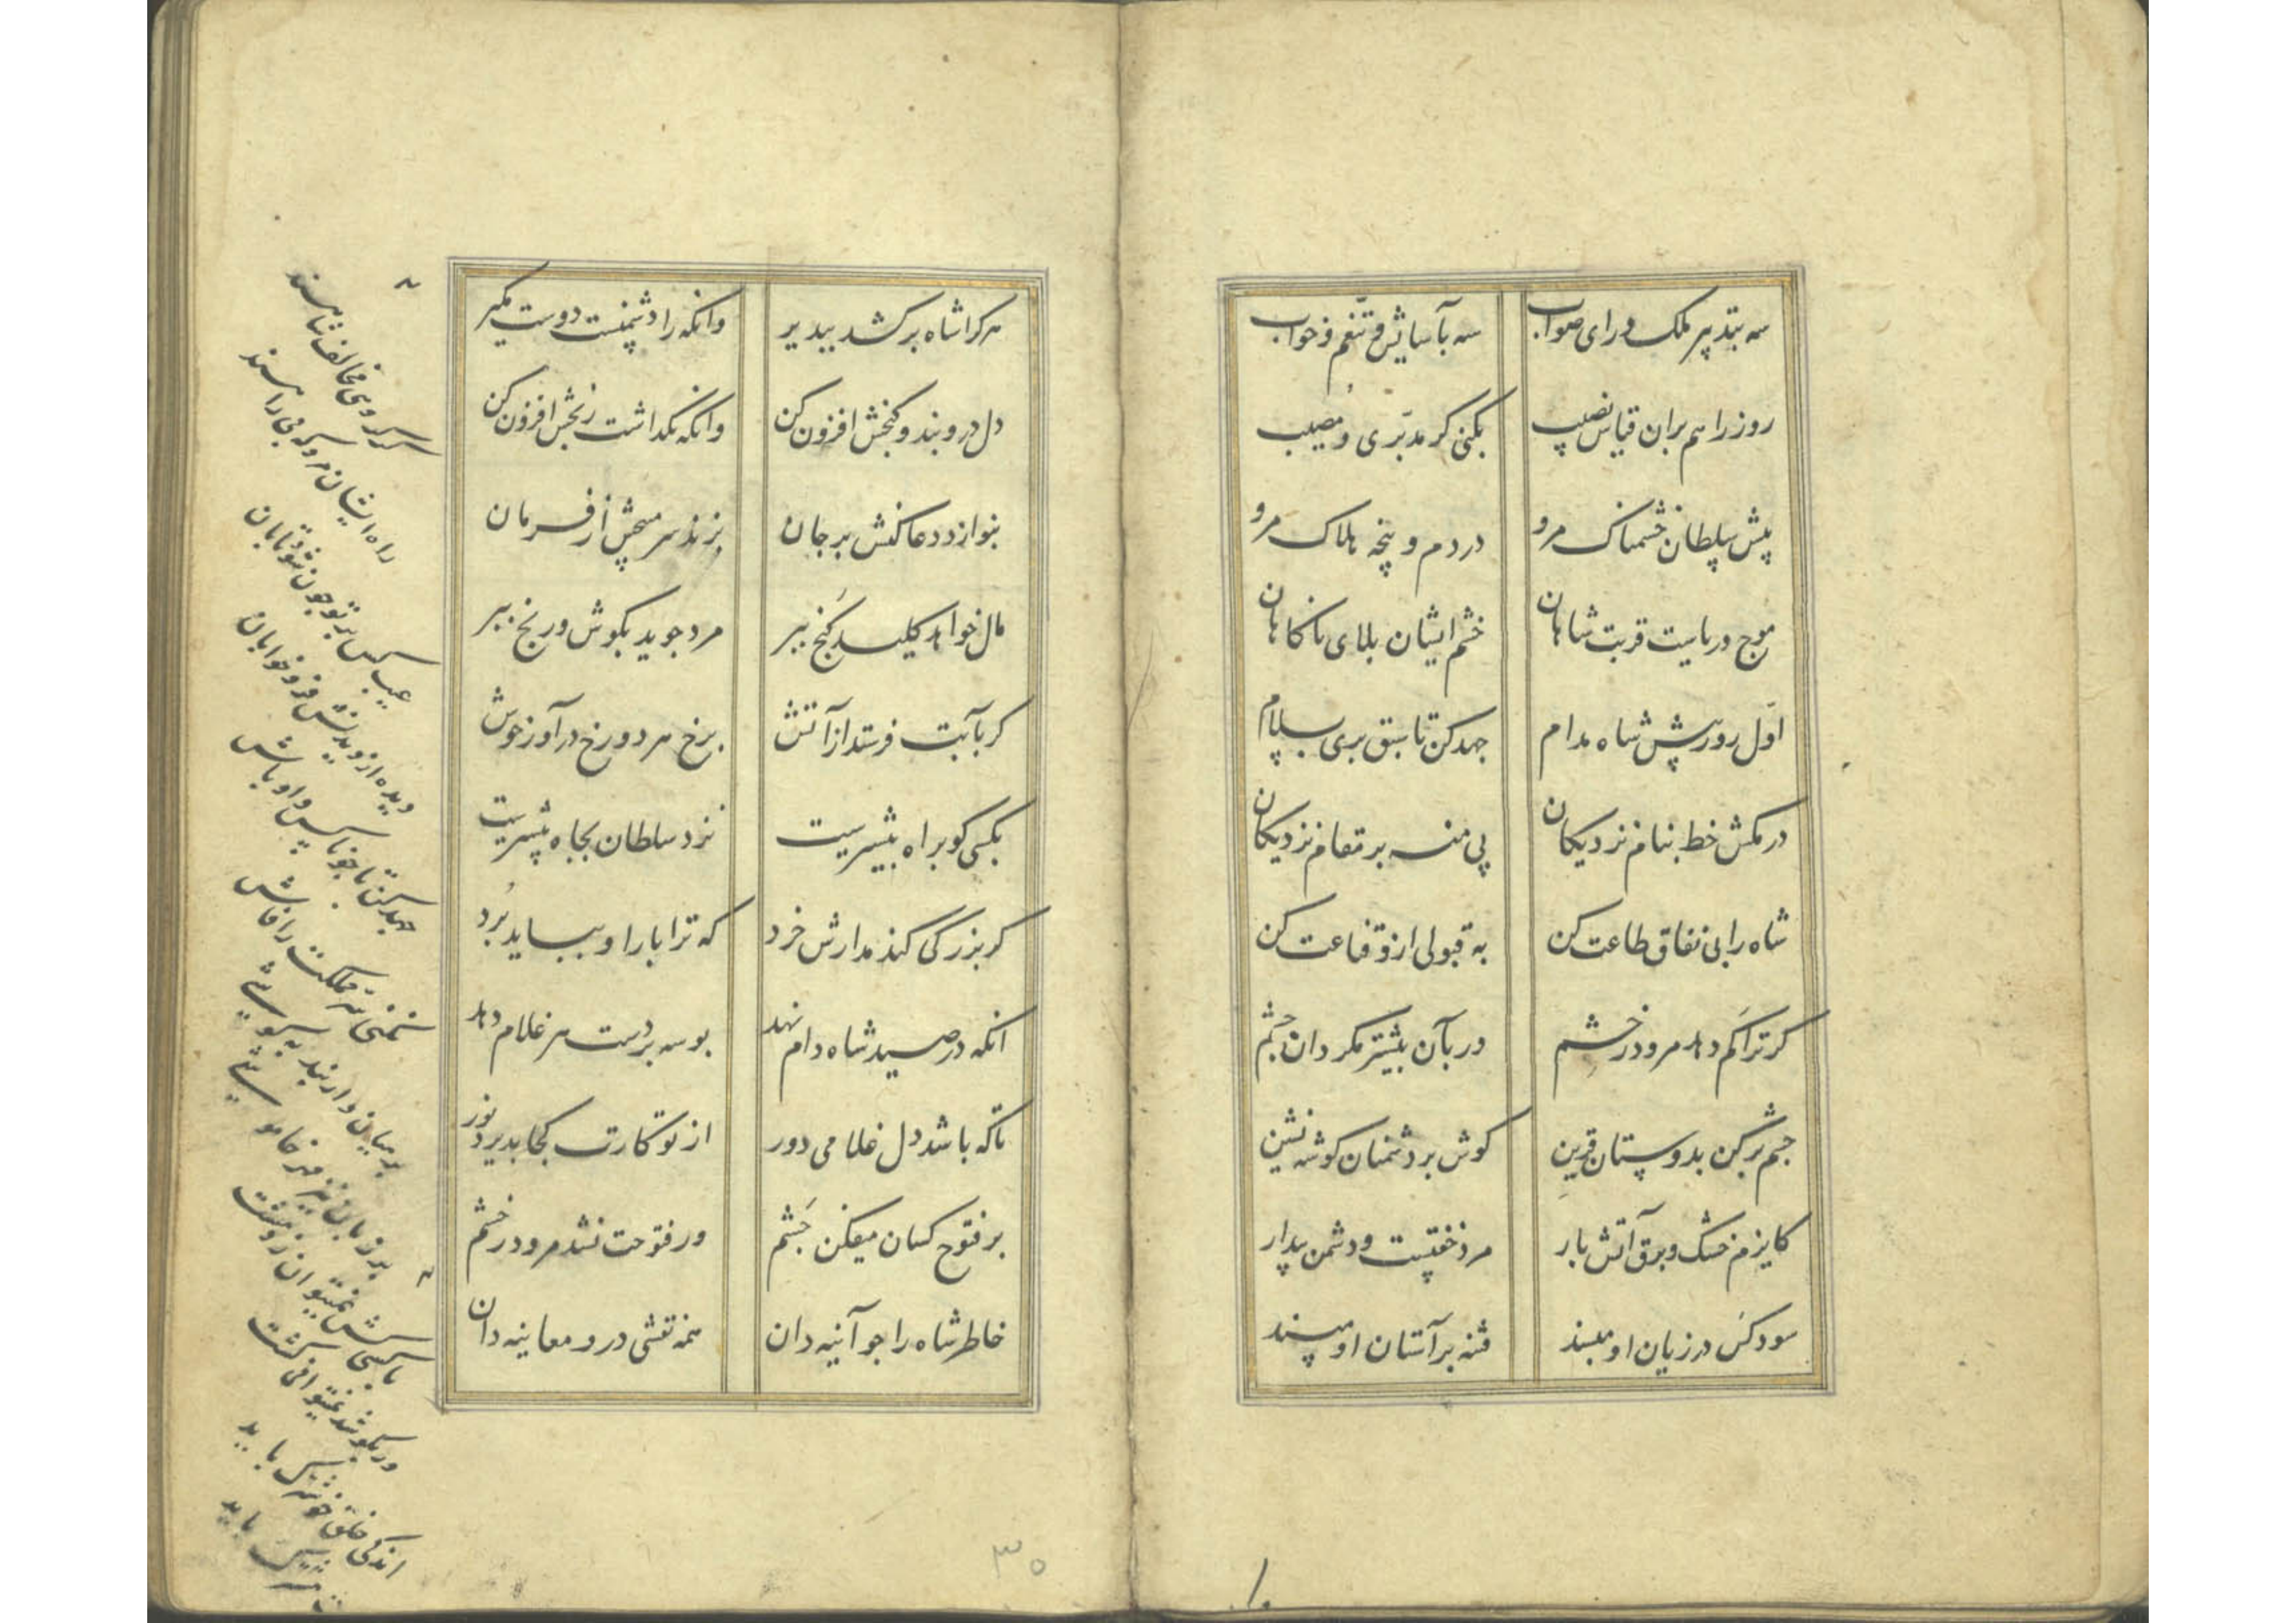 سه بتدبیر ملک و رای صواب
سه بآسایش و تنعم و خواب
روز را هم بران قیاس نصیب
بکنی گر مدبری و مصیب
پیش سلطان خشمناک مرو
در دم و پنجه هلاک مرو
موج دریاست قربت شاهان
خشم ایشان بلای ناکاهان
اول روز پیش شاه مدام
جهد کن تا سبق بری بسلام
در مکش خط بنام نزدیکان
پی منه بر مقام نزدیکان
شاه را بی نفاق طاعت کن
به قبولی ازو قناعت کن
کر ترا کم دهد مرو در خشم
ور بآن بیشتر مکردان چشم
چشم بر کن بدوستان قرین
کوش بر دشمنان کوشه نشین
کایزم خشک و برق آتش بار
مرد خفتست و دشمن بیدار
سود کس در زیان او مپسند
فتنه بر آستان او مپسند
هر کرا شاه بر کشد بپذیر
وانکه را دشمنست دوست مکیر
دل درو بند و کنجش افزون کن
وانکه بکداشت رنجش افزون کن
بنوازد دعا کنش بر جان
بزند سر مپیچش از فرمان
مال خواهد کلید کنج ببر
مرد جوید بکوش و رنج ببر
کر بآبت فرستد ار آتش
برخ هر دو رخ درآور خوش
بکسی کو براه بیشتریست
نزد سلطان بجاه پیشتریست
کو بزرکی کند مدارش خرد
که ترا بار او بباید برد
انکه در صید شاه دام نهد
بوسه بر دست هر غلام دهد
تا که باشد دل غلامی دور
از تو کارت کجا پذیرد نور
بر فتوح کسان میفکن چشم
ور فتوحت نشد مرو در خشم
خاطر شاه را جو آینه دان
همه نقشی درو معاینه دان
سر کروهی مخالف شاهند
راه ایشان مرو که بی راهند
عیب کس بر تو چون شود تابان
دیده از دیدنش فرو خوابان
جهد کن تا جو ناکس و اوباش
نکنی سر مملکت را فاش
بر میان دار بند نیکوشی
بر زبان نیز مهر خاموشی
تا بکنجاش نمیتوان زد مشت
ور بکوشد نمیتوانی کشت
اندکی خلق خوشترک باید